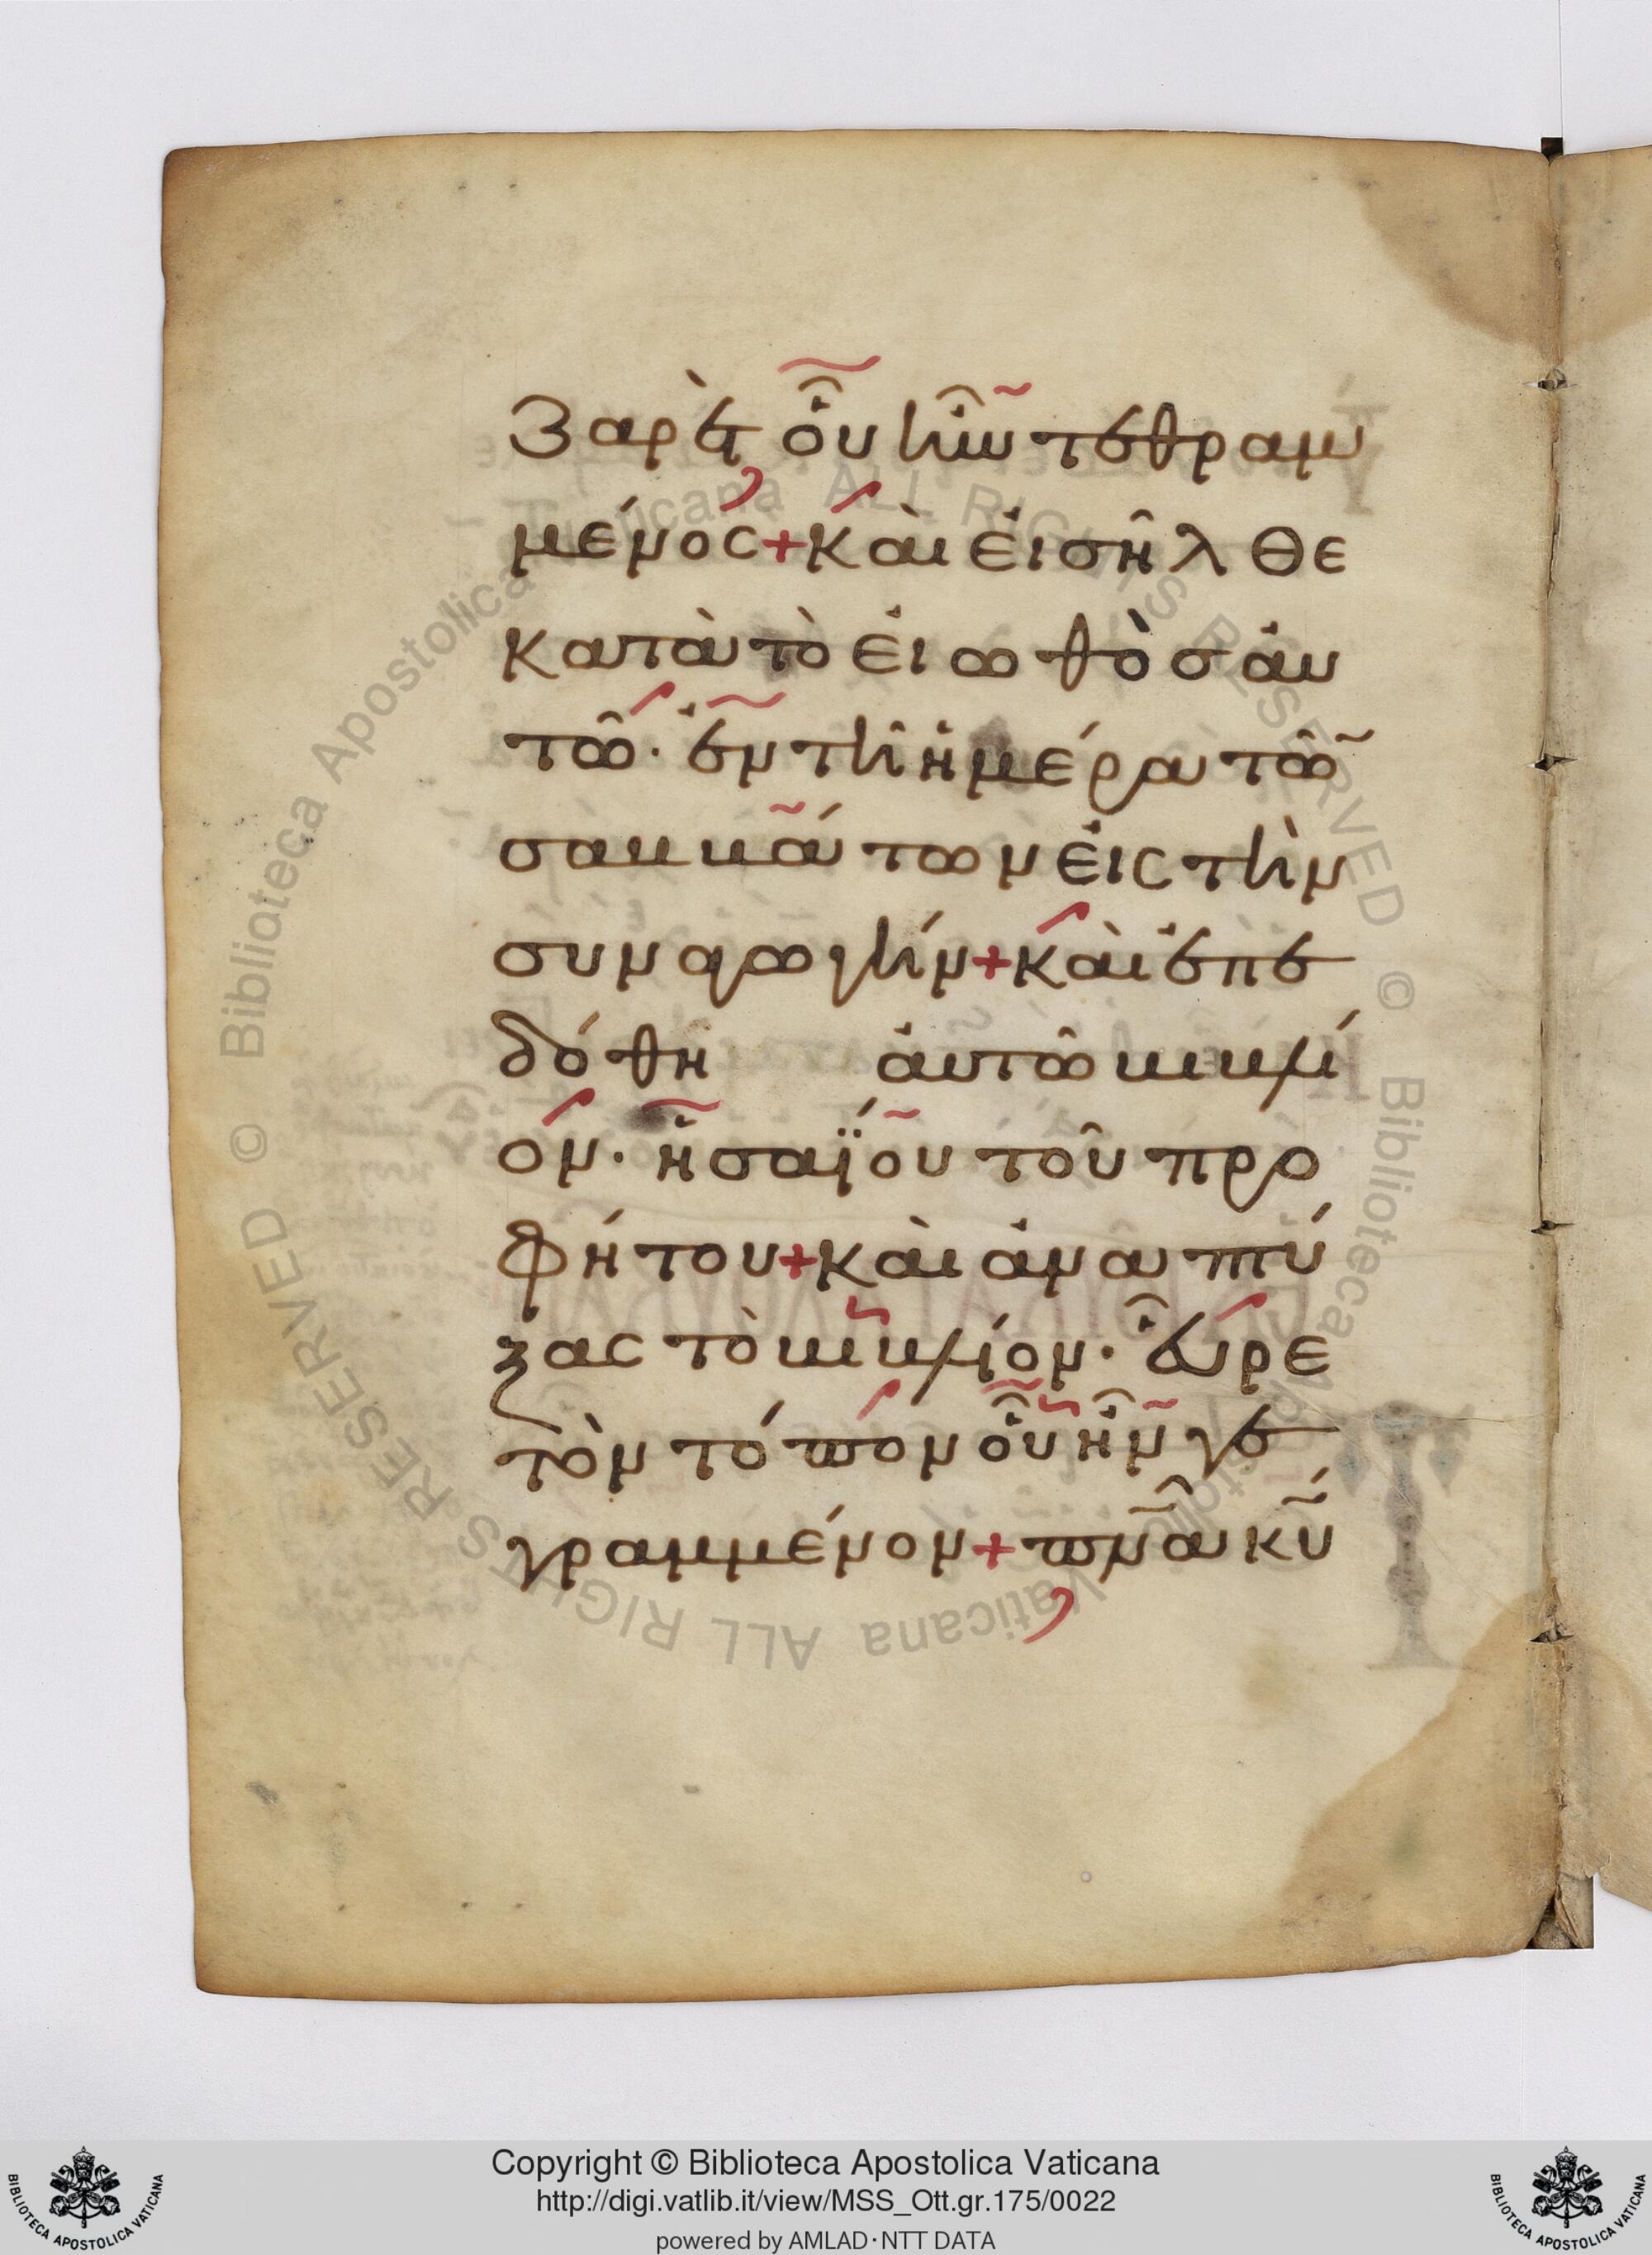 ζαρὲτ οὗ ἦν τεθραμ
μένος + καὶ εἰσῆλθε
κατὰ τὸ εἰωθὸς αὐ
τῶ · ἐν τῆ ἡμέρα τῶν
σαββάτων εἰς τὴν
συναγωγήν + καὶ ἐπε
δόθη αὐτῶ βιβλί
ον · ἠσαΐου τοῦ προ
φήτου + καὶ ἀναπτύ
ξας τὸ βιβλίον · εὗρε
τὸν τόπον οὗ ἦν γε
γραμμένον + πνα κυ
© Biblioteca Apostolica Vaticana ALL RIGHTS RESERVED © Biblioteca Apostolica Vaticana ALL RIGHTS RESERVED
BIBLIOTECA APOSTOLICA VATICANA
Copyright © Biblioteca Apostolica Vaticana
http://digi.vatlib.it/view/MSS_Ott.gr.175/0022
powered by AMLAD·NTT DATA
BIBLIOTECA APOSTOLICA VATICANA